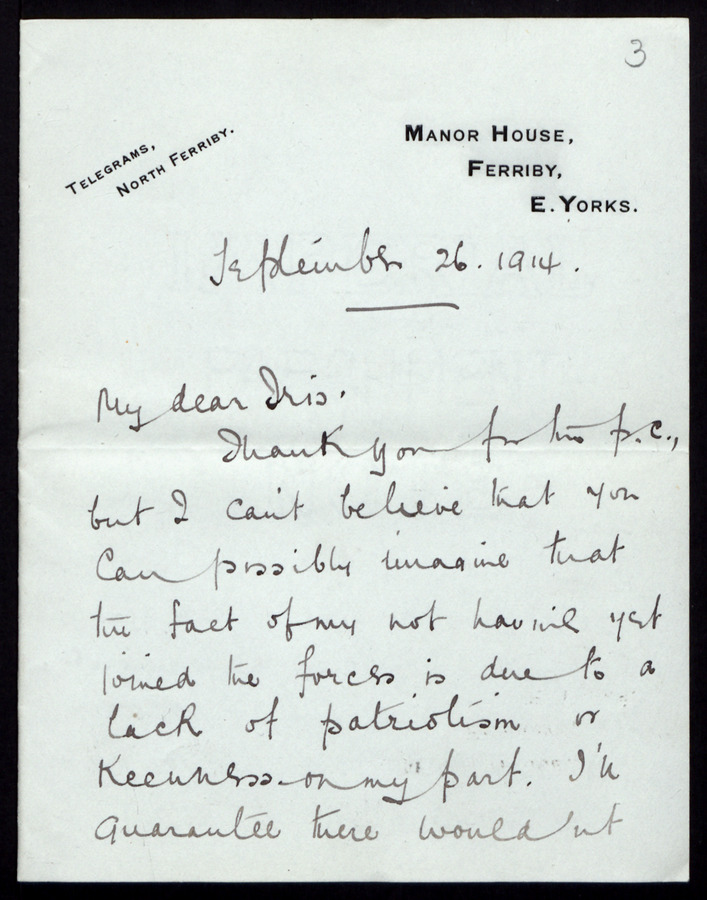 3
TELEGRAMS,
NORTH FERRIBY.
MANOR HOUSE,
FERRIBY,
E. YORKS.
September 26. 1914.
My dear Iris.
Thank you for the p.c.,
but I can't believe that you
can possibly imagine that
the fact of my not having yet
joined the forces is due to a
lack of patriotism or
keenness on my part. I'll
guarantee there wouldn't